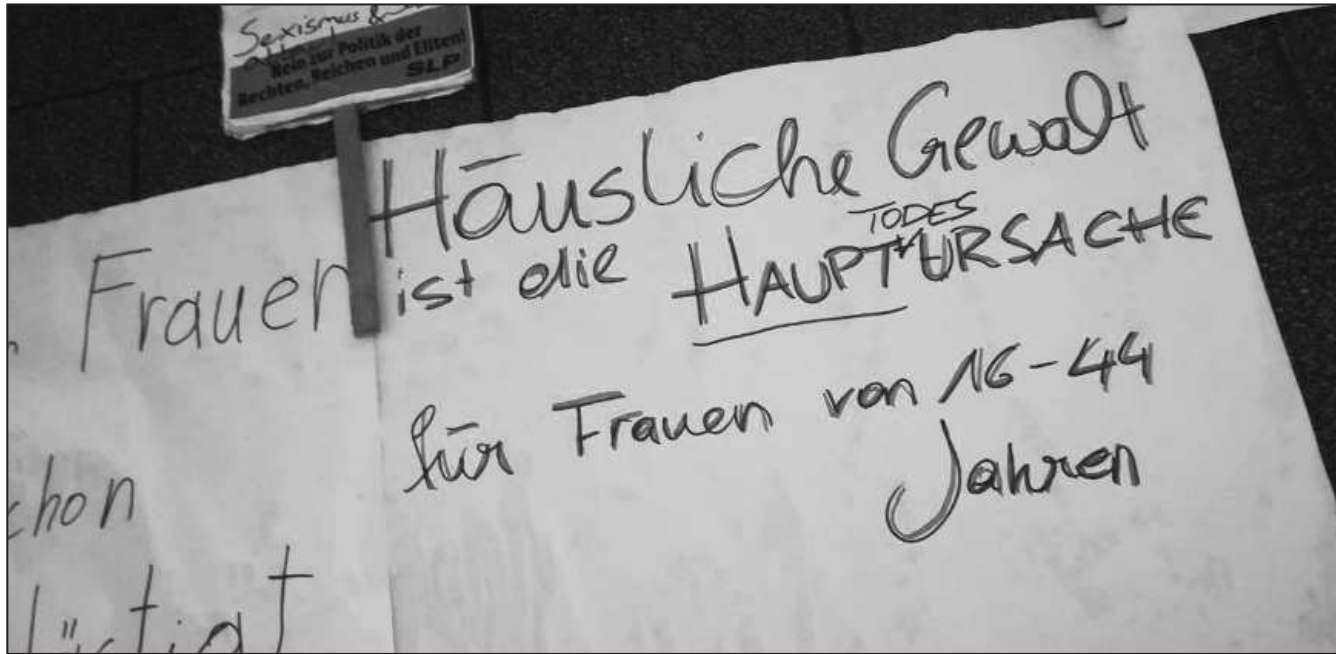 Sexismus &
Nein zur Politik der
Rechten, Reichen und Eliten!
SLP
Frauen
chon
Häusliche Gewalt
ist die HAUPTTODESURSACHE
für Frauen von 16-44
Jahren